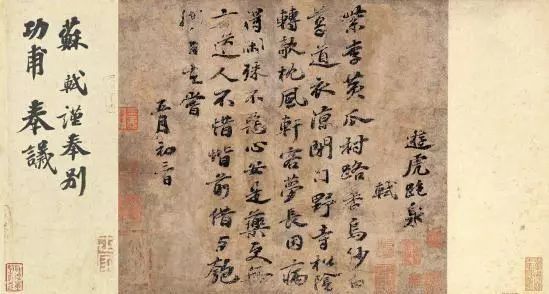 遊虎跑泉
軾
紫李黃瓜村路香烏紗白
葛道衣涼閉門野寺松陰
轉欹枕風軒客夢長因病
得閑殊不惡心安是藥更無
方道人不惜階前借与匏
樽自在嘗
五月初
蘇軾謹奉別
功甫奉議